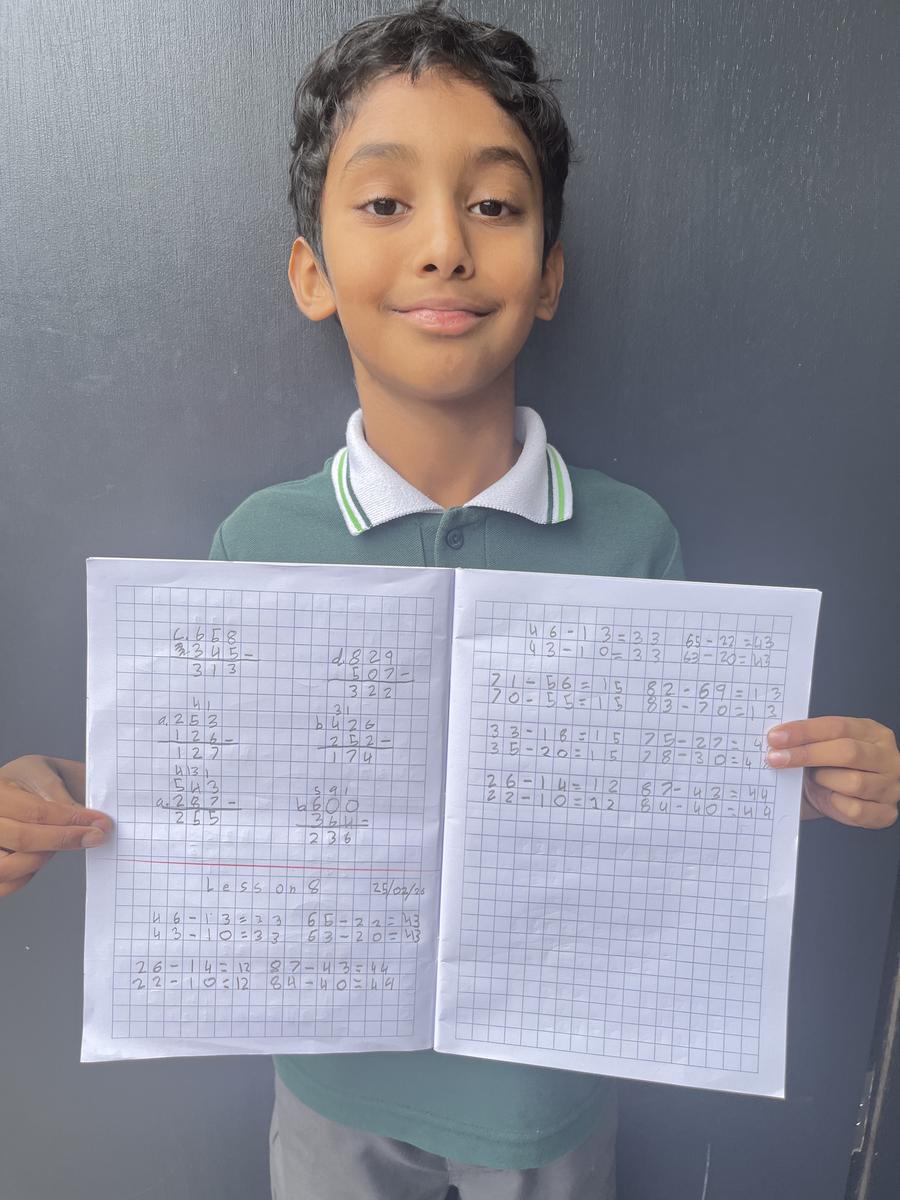 c. 658
345-
313
d. 829
507-
322
41
a. 253
126-
127
31
b 426
252-
174
431
543
a. 287-
255
591
b 600
364-
236
Lesson 8 25/02/26
46-13=33 65-22=43
43-10=33 63-20=43
26-14=12 87-43=44
22-10=12 84-40=44
46-13=33 65-22=43
43-10=33 63-20=43
71-56=15 82-69=13
70-55=15 83-70=13
33-18=15 75-27=4
35-20=15 78-30=4
26-14=12 87-43=44
22-10=12 84-40=44